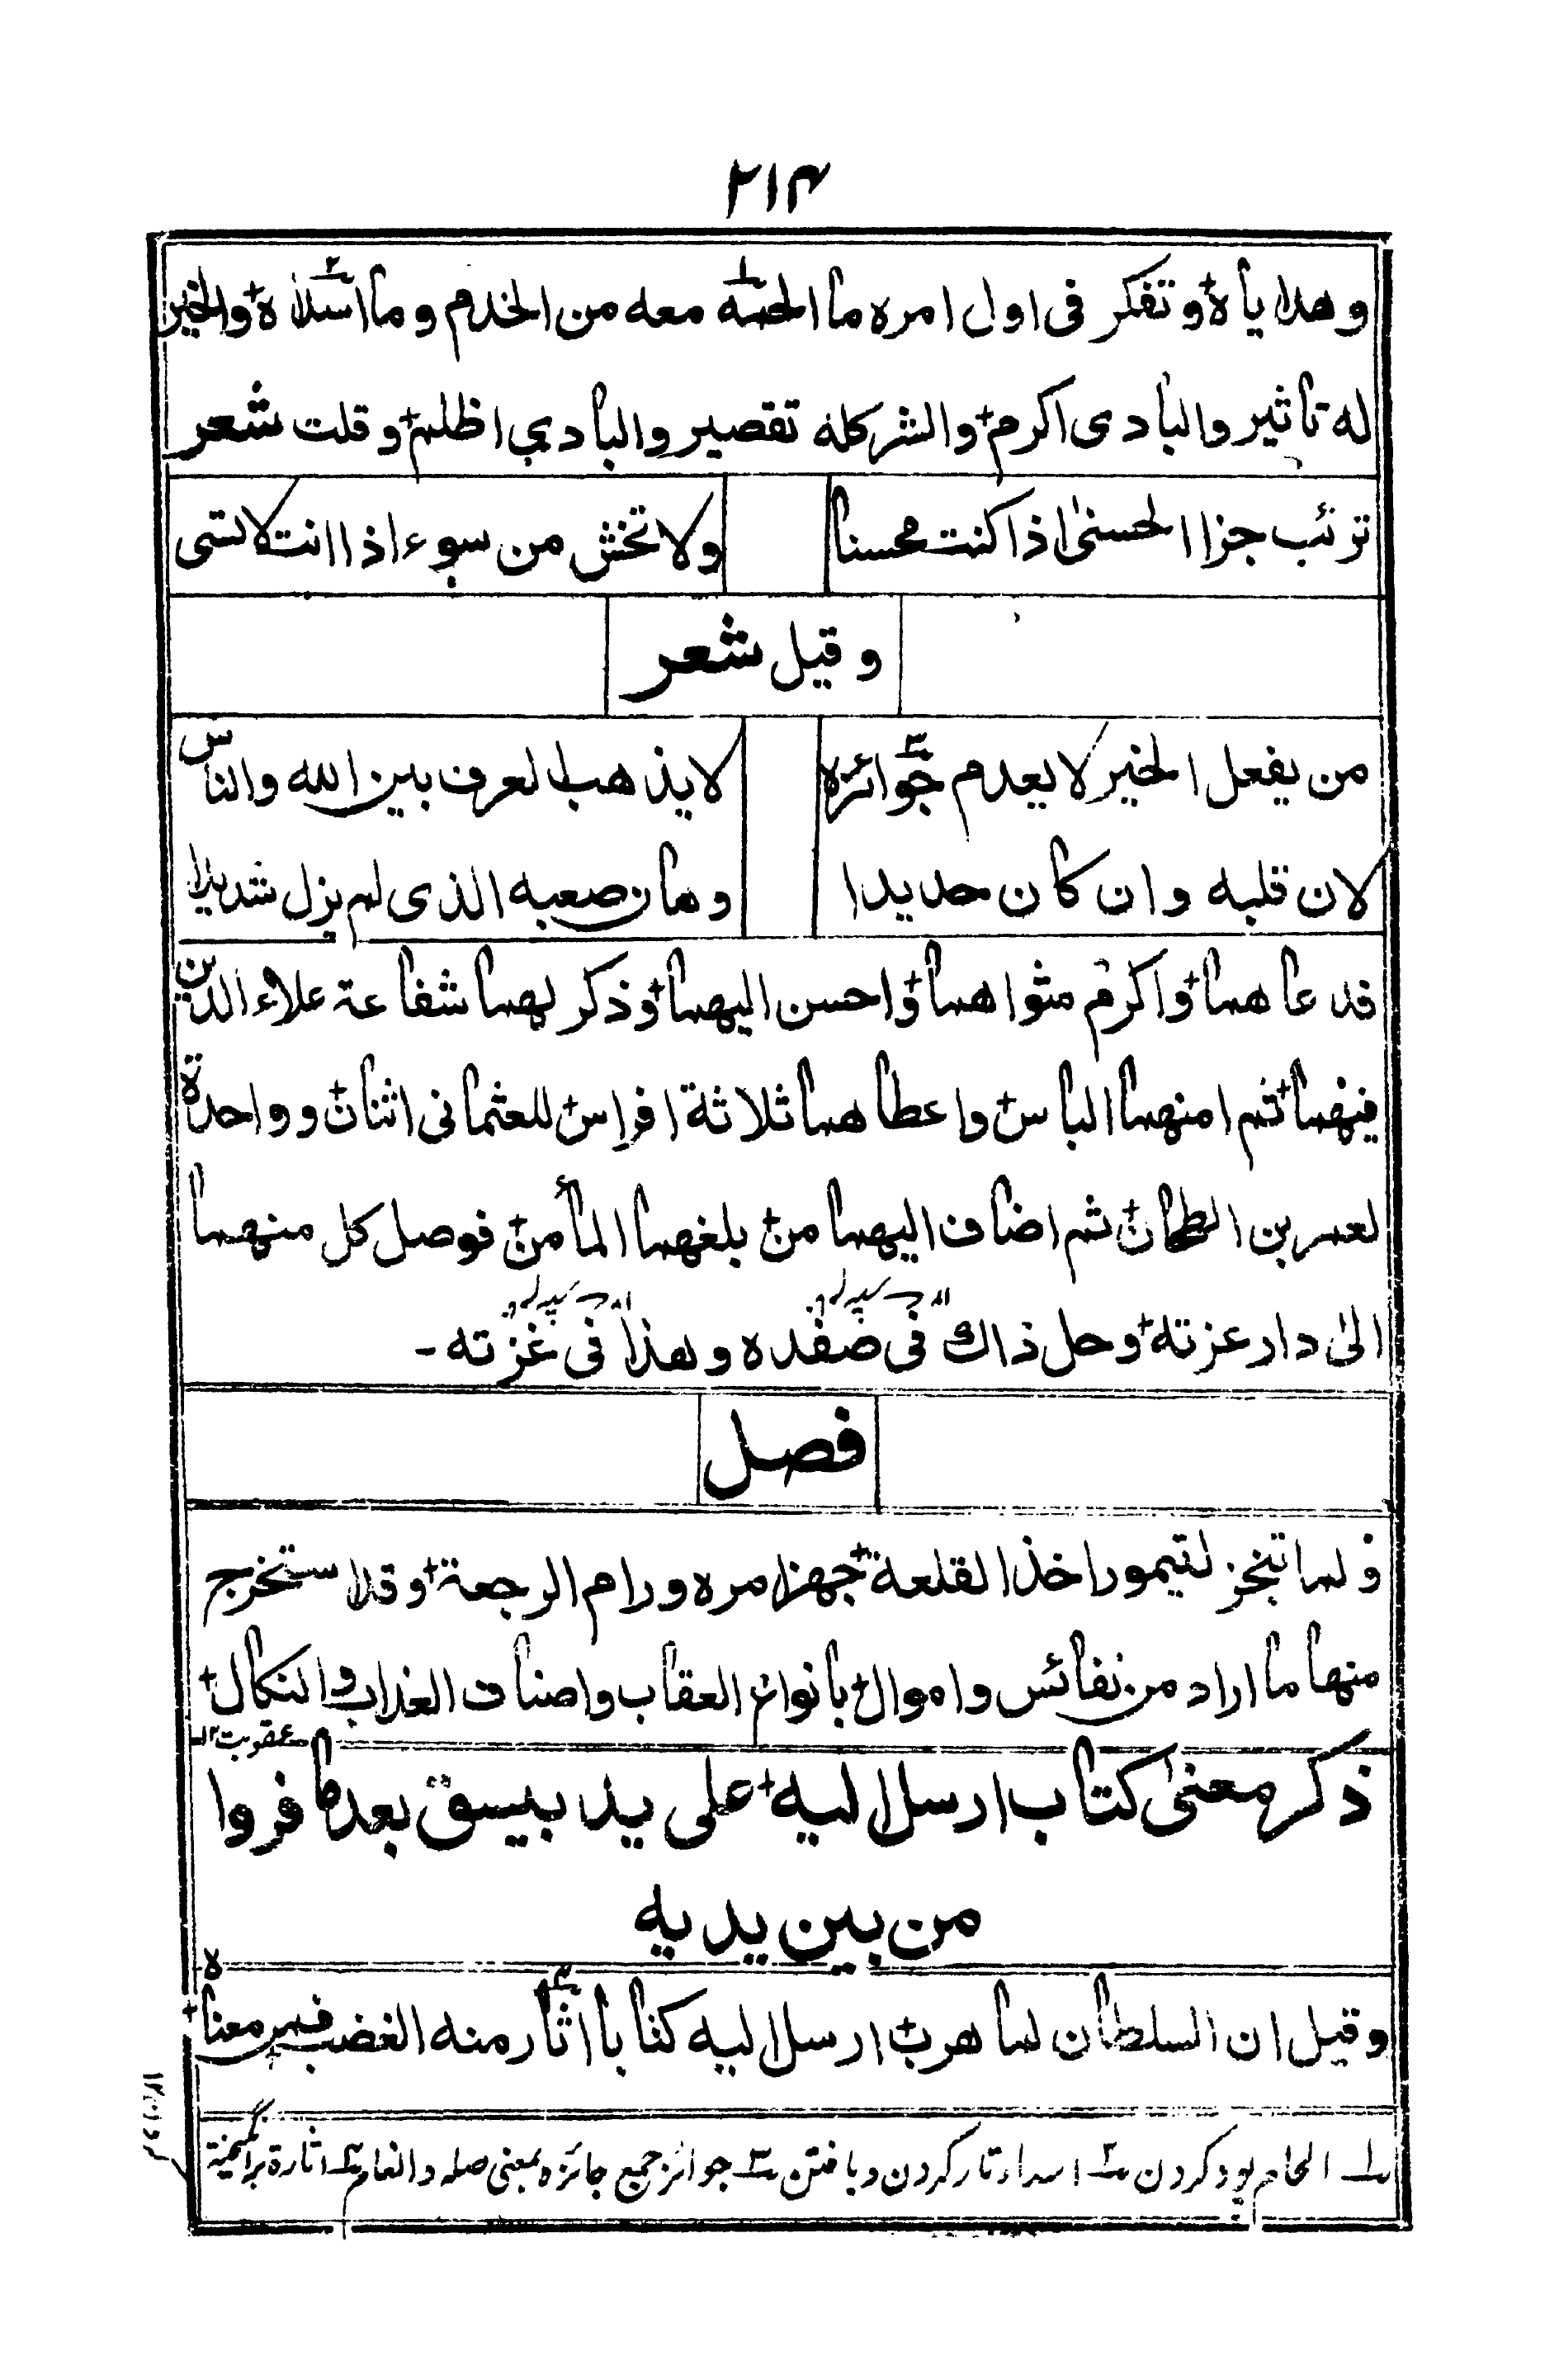 ۲۱۴
وهدایاه وتفکر فی اول امره ما الحمته معه من الخدم وما اسداه والخیر
له تاثیر والبادی اکرم والشر کله تقصیر والبادی اظلم وقلت شعر
ترتب جزا الحسنیٰ اذا کنت محسنا ولا تخش من سوء اذا انت لا تسی
وقیل شعر
من یفعل الخیر لا یعدم جوائزه لا یذهب العرف بین الله والناس
لان قلبه وان کان حدیدا وهان صعبه الذی لم یزل شدیدا
فدعاهما واکرم مثواهما واحسن الیهما وذکر لهما شفاعة علاء الدین
فیهما ثم امنهما الباس واعطاهما ثلاثة افراس للعثمانی اثنان وواحدة
لعمر بن الطحان ثم اضاف الیهما من بلغهما المأمن فوصل کل منهما
الیٰ دار عزته وحل ذاك فی صفده وهذا فی غزته -
فصل
ولما تنجز لتیمور اخذ القلعة جهز امره ورام الرجعة وقد استخرج
منها ما اراد من نفائس واموال بانواع العقاب واصناف العذاب والنکال
عقوبت ۱۲
ذکر معنیٰ کتاب ارسل الیه علی ید بیسق بعد ما فروا
من بین یدیه
وقیل ان السلطان لما هرب ارسل الیه کتابا اثار منه الغضب فمن معناه
۱ الحام پود کردن ۲ اسداء تار کردن و بافتن ۳ جوائز جمع جائزه بمعنی صله وانعام ۴ اثارة برانگیختن